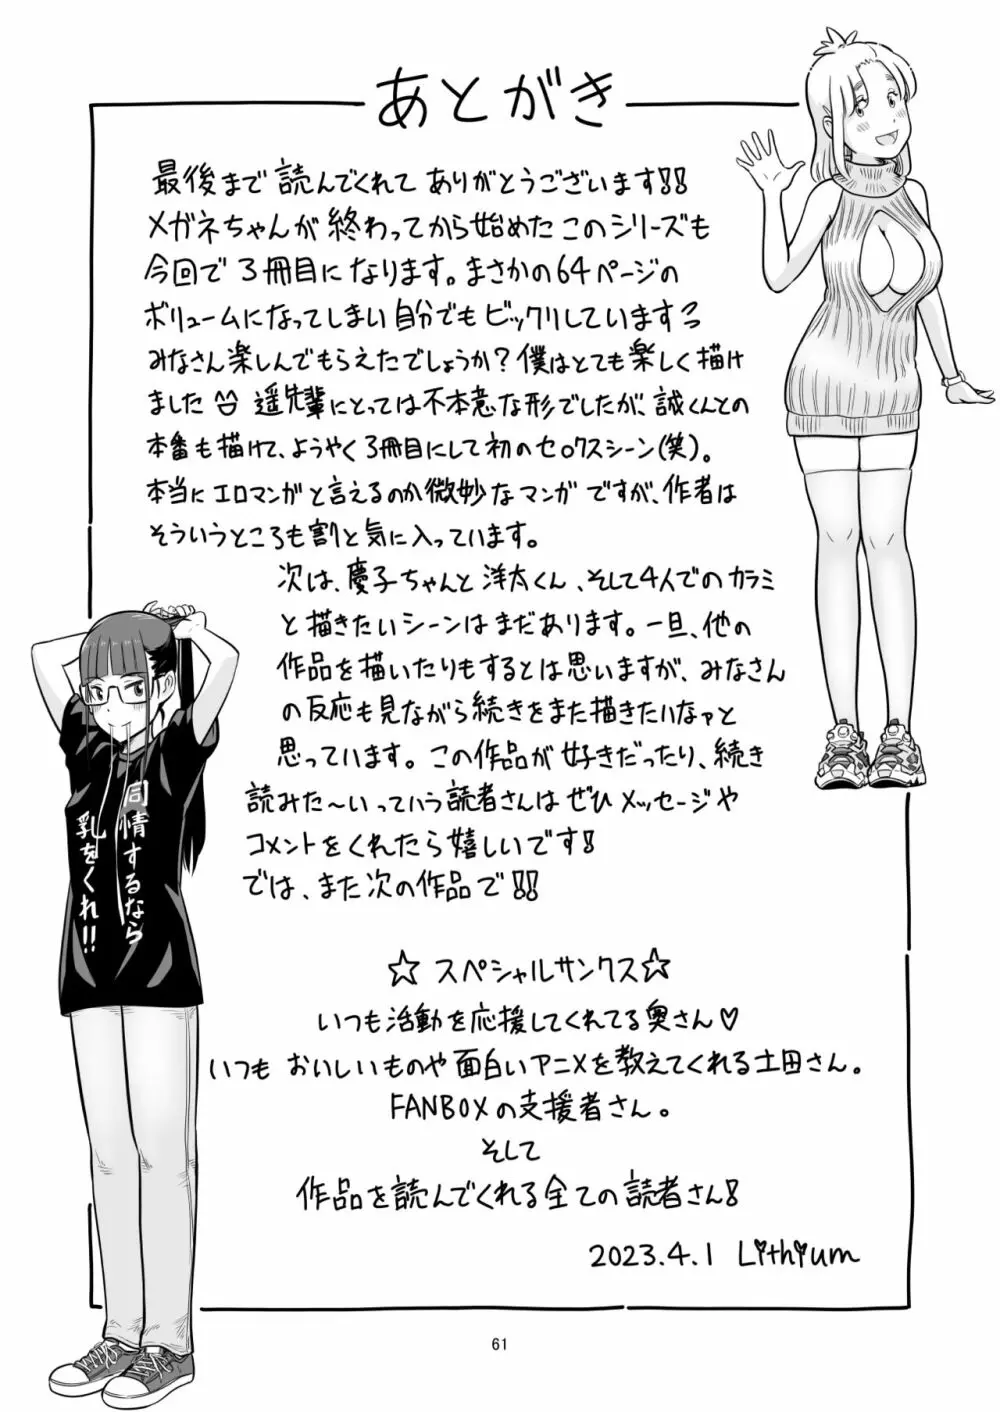 あとがき
最後まで読んでくれてありがとうございます!!
メガネちゃんが終わってから始めたこのシリーズも
今回で3冊目になります。まさかの64ページの
ボリュームになってしまい自分でもビックリしています
みなさん楽しんでもらえたでしょうか?僕はとても楽しく描け
ました 遥先輩にとっては不本意な形でしたが、誠くんとの
本番も描けて、ようやく3冊目にして初のセ○クスシーン(笑)。
本当にエロマンガと言えるのか微妙なマンガですが、作者は
そういうところも割と気に入っています。
次は、慶子ちゃんと洋太くん、そして4人でのカラミ
と描きたいシーンはまだあります。一旦、他の
作品を描いたりもするとは思いますが、みなさん
の反応も見ながら続きをまた描きたいなァと
思っています。この作品が好きだったり、続き
読みた〜いっていう読者さんはぜひメッセージや
コメントをくれたら嬉しいです!
では、また次の作品で!!
同情するなら
乳をくれ!!
☆スペシャルサンクス☆
いつも活動を応援してくれてる奥さん♡
いつもおいしいものや面白いアニメを教えてくれる土田さん。
FANBOXの支援者さん。
そして
作品を読んでくれる全ての読者さん!
2023.4.1 Lithium
61